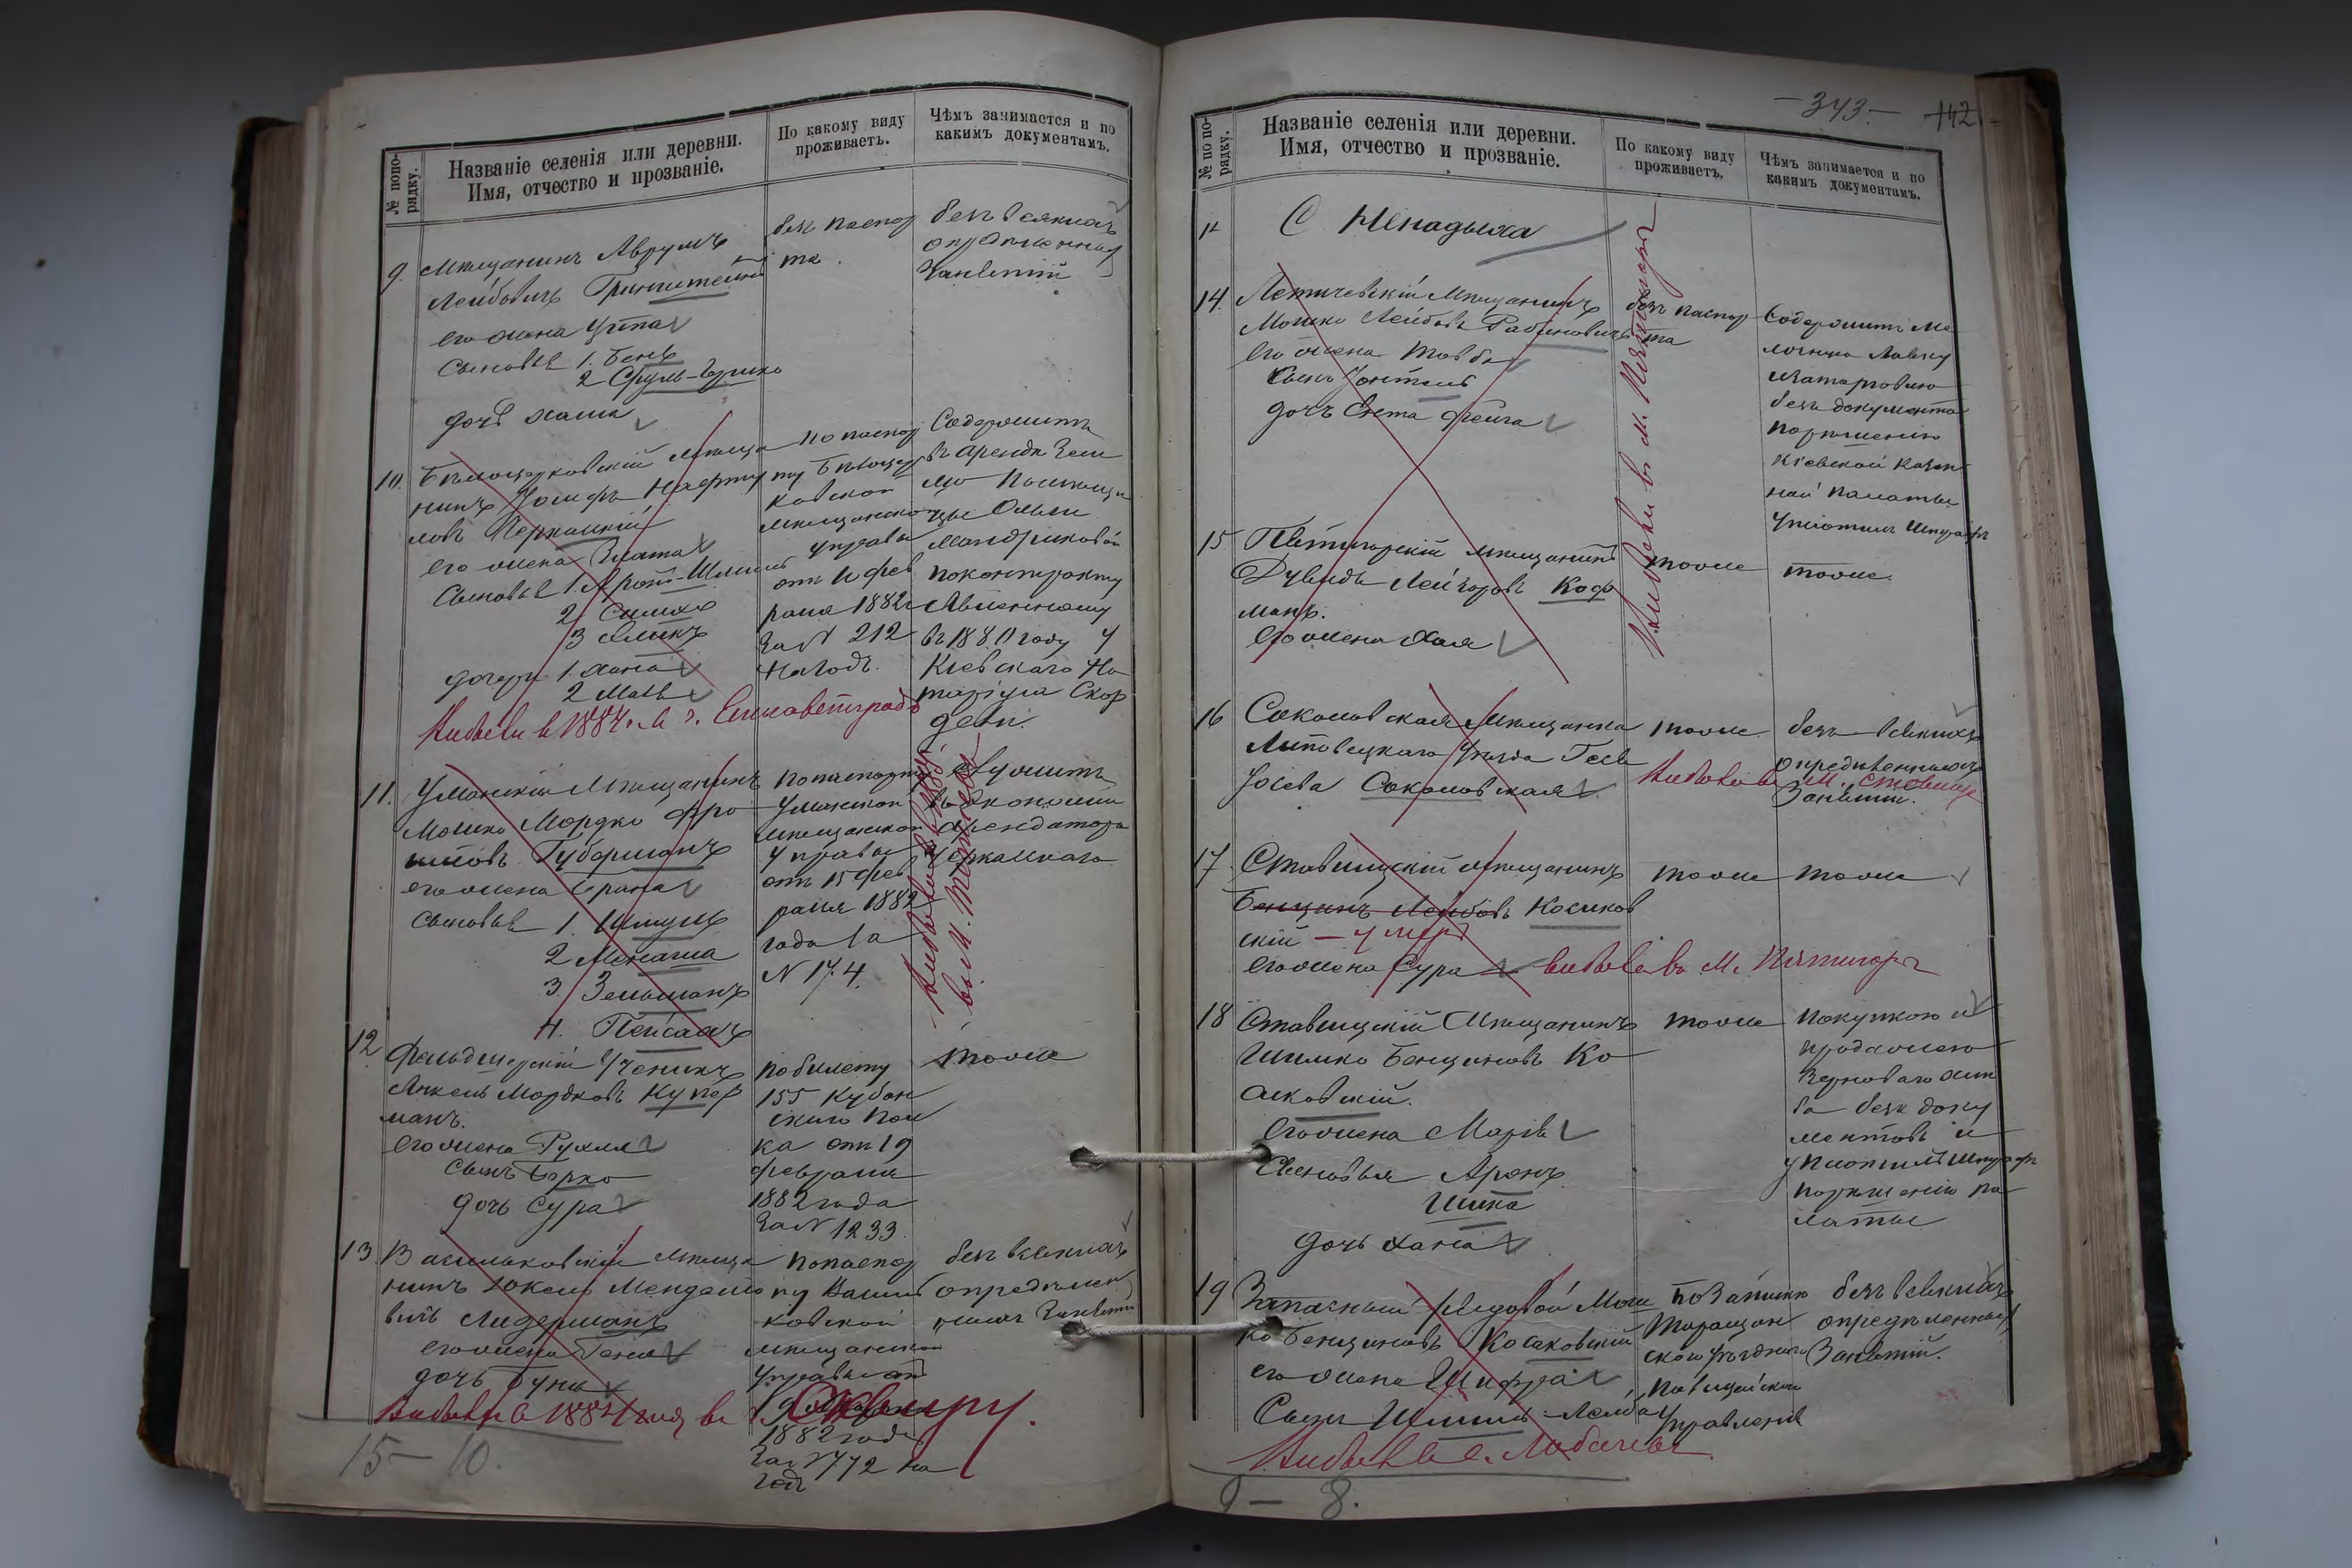 № попо-
рядку.
Названіе селенія или деревни.
Имя, отчество и прозваніе.
По какому виду
проживаетъ.
Чѣмъ занимается и по
какимъ документамъ.
9. Мѣщанинъ Аврумъ
Лейбовичъ Гринштейнъ
его жена
Сыновья 1. Бенъ
2 Сруль-
дочь Хаша
безъ паспор
та.
безъ всякихъ
опредѣленныхъ
Занятій
10. Бѣлоцерковскій мѣща
нинъ
Черкасскій
его жена Злата
Сыновья 1. Арон-Шлема
2 Симха
3
дочери 1. Хана
2 Маля
Выбыли в 1884 г. в г. Елисаветградъ
по паспор
ту Бѣлоцер
ковской
мѣщанской
управы
отъ 11 фев
раля 1882 г
за № 212
на годъ.
Содержитъ
въ арендѣ
Ольги
по контракту
Явленному
въ 1880 году у
Кіевскаго Но
таріуса
11. Уманскій Мѣщанинъ
Мошко Мордко Фро
имовъ Губерманъ
его жена
Сыновья 1. Шмуль
2 Менаша
3. Зельманъ
4. Пейсахъ
по паспорту
Уманской
мѣщанской
управы
отъ 15 фев
раля 1882
года за
№ 174.
Служитъ
въ экономіи
арендатора
Черкасскаго
12 Фельдшерскій Ученикъ
Янкель Мордковъ Купер
манъ.
его жена Рухля
сынъ Берко
дочь Сура
по билету
155 Кубан
скаго пол
ка отъ 19
февраля
1882 года
за № 1233.
тоже
13. Васильковскій мѣща
нинъ Іокель Мендело
вичъ Лидерманъ
его жена Геня
дочь Буня
Выбыли в 1884 году въ Сквиру.
по паспор
ту Василь
ковской
мѣщанской
управы отъ
1882 года
за № 772 на
годъ
безъ всякихъ
опредѣлен
ныхъ Занятій
15 – 10.
– 343. –
142
№ по по-
рядку.
Названіе селенія или деревни.
Имя, отчество и прозваніе.
По какому виду
проживаетъ.
Чѣмъ занимается и по
какимъ документамъ.
С Ненадыха
14. Летичевскій Мѣщанинъ
Мошко Лейбовъ Рабиновичъ
его жена Товба
Сынъ
дочь Фейга
безъ паспор
та
Содержитъ ме
лочную лавку
за торговлю
безъ документа
по рѣшенію
Кіевской Казен
ной палаты
уплотилъ штрафъ
Выбыли в м. Пятигоры
15 Пятигорскій мѣщанинъ
Дувидъ Лейзоровъ Коф
манъ.
его жена Хая
тоже
тоже
16 Соколовская Мѣщанка
Липовецкаго уѣзда
Соколовская
тоже
безъ всякихъ
опредѣленныхъ
Занятій.
Выбыла въ м. Ставище
17 Ставищскій мѣщанинъ
Бенціонъ Лейбовъ Косаков
скій – умеръ
его жена Сура выбыла въ м. Пятигоры
тоже
тоже
18 Ставищскій Мѣщанинъ
Шимко Бенціоновъ Ко
саковскій.
его жена Марія
Сыновья Аронъ
Шика
дочь Хана
тоже
покупкою и
продажею
зерноваго хлѣ
ба безъ доку
ментовъ и
уплотилъ штрафъ
по рѣшенію па
латы
19 Запасный рядовой Мош
ко Бенціоновъ Косаковскій
его жена Шифра
Сынъ Шмиль-Лейба
Выбылъ в с. Лобачевъ
по Запискѣ
Таращан
скаго уѣзднаго
полицейскаго
управленія
безъ всякихъ
опредѣленныхъ
Занятій.
9 – 8.